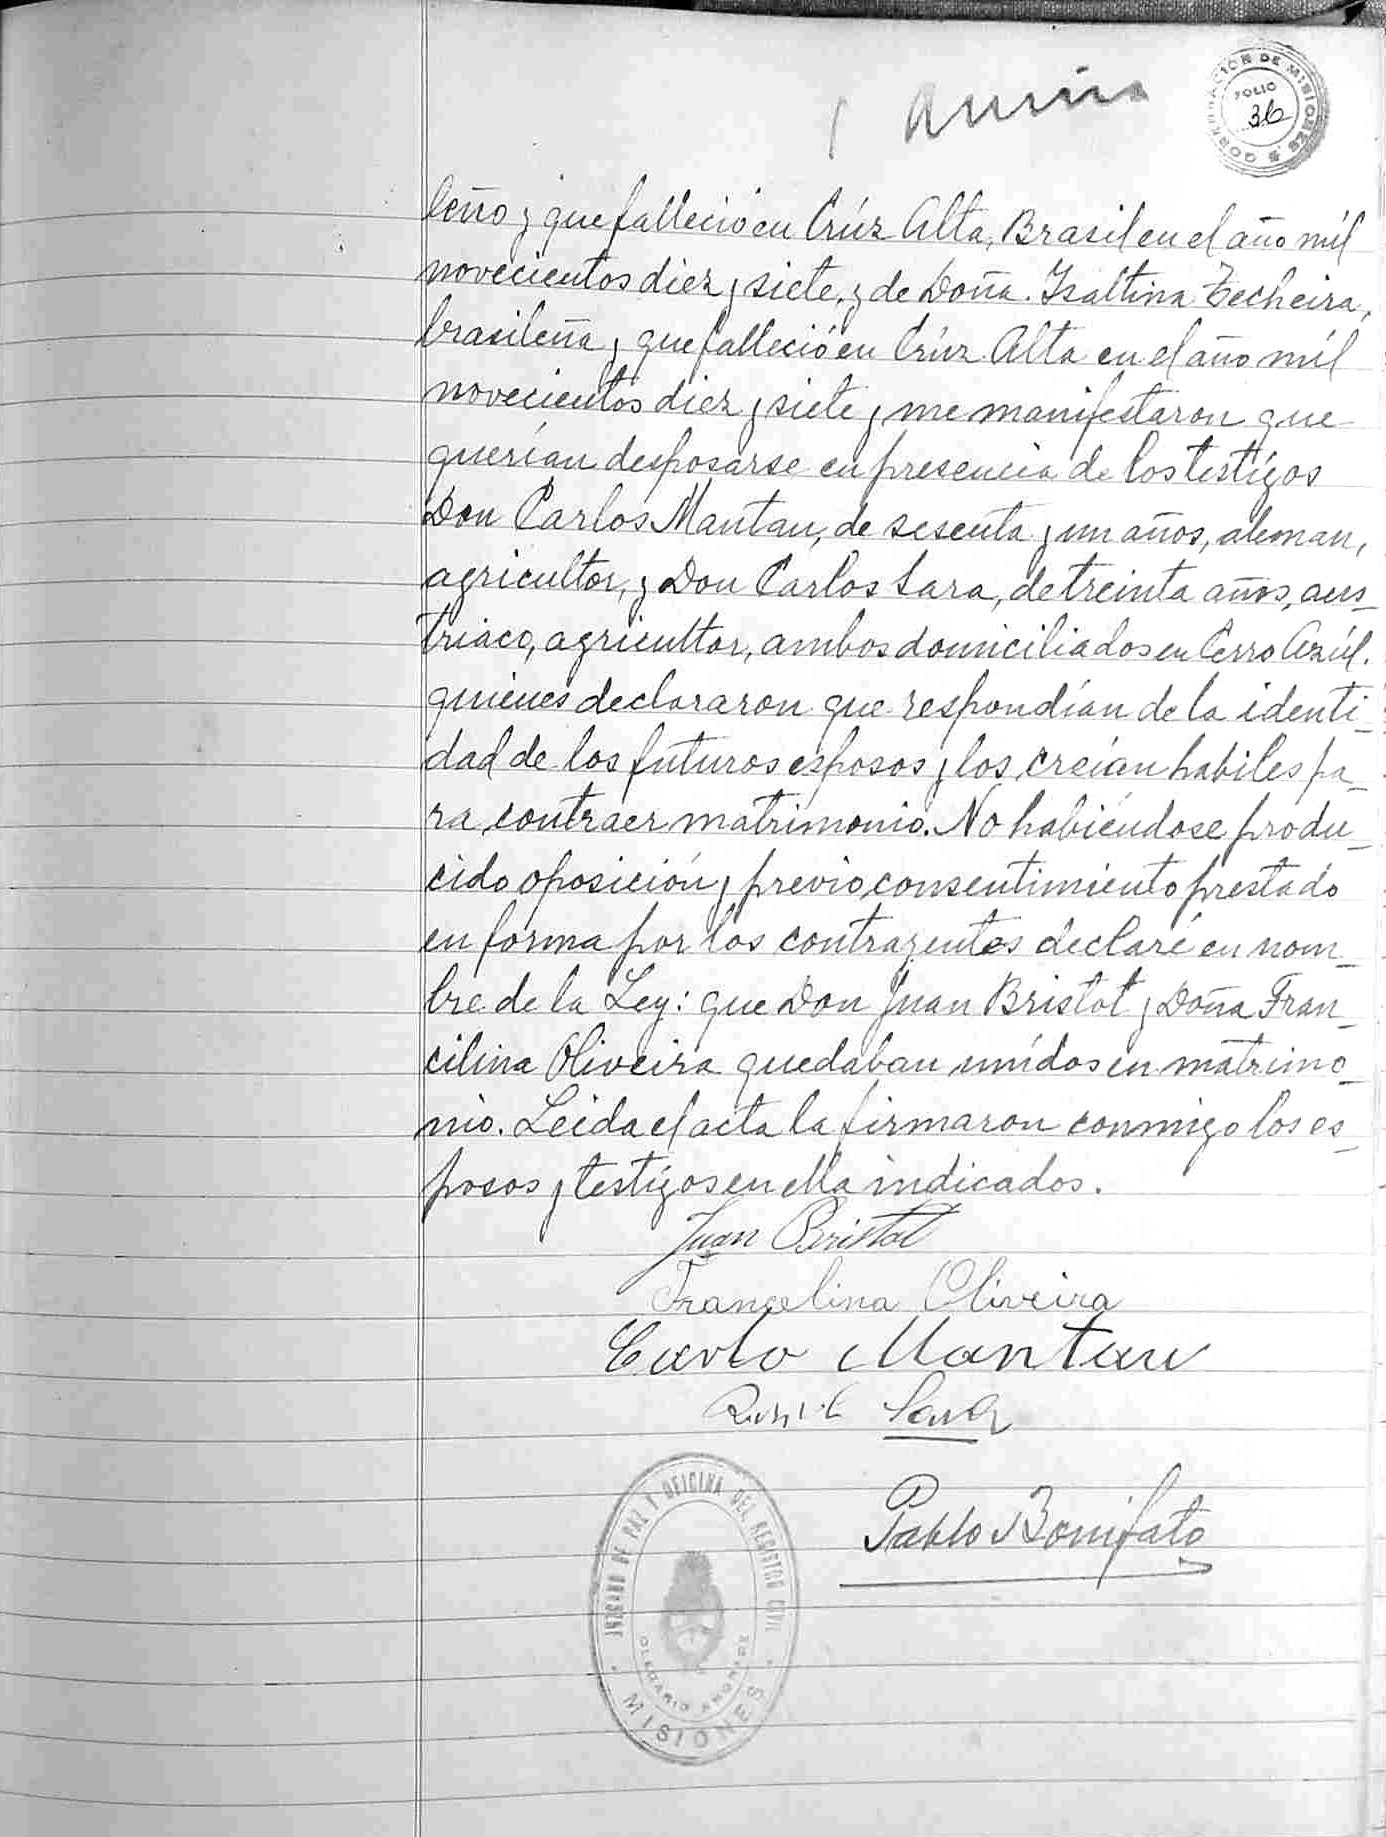 GOBERNACION DE MISIONES
FOLIO
36
leño y que falleció en Crúz Alta, Brasil en el año mil
novecientos diez y siete, y de Doña. Isaltina Techeira,
brasileña y que falleció en Crúz Alta en el año mil
novecientos diez y siete y me manifestaron que
querían desposarse en presencia de los testigos
Don Carlos Mantau, de sesenta y un años, aleman,
agricultor, y Don Carlos Sara, de treinta años, aus_
triaco, agricultor, ambos domiciliados en Cerro Azúl.
quienes declararon que respondían de la identi_
dad de los futuros esposos y los creían habiles pa_
ra contraer matrimonio. No habiéndose produ_
cido oposición y previo consentimiento prestado
en forma por los contrayentes declaré en nom_
bre de la Ley: que Don Juan Bristot y Doña Fran_
cilina Oliveira quedaban unídos en matrimo_
nio. Leida el acta la firmaron conmigo los es_
posos y testigos en ella indicados.
Juan Bristot
Francelina Oliveira
Carlo Mantau
Sara
Pablo Bonifato
JUZGADO DE PAZ Y OFICINA DEL REGISTRO CIVIL
OLEGARIO ANDRADE
MISIONES